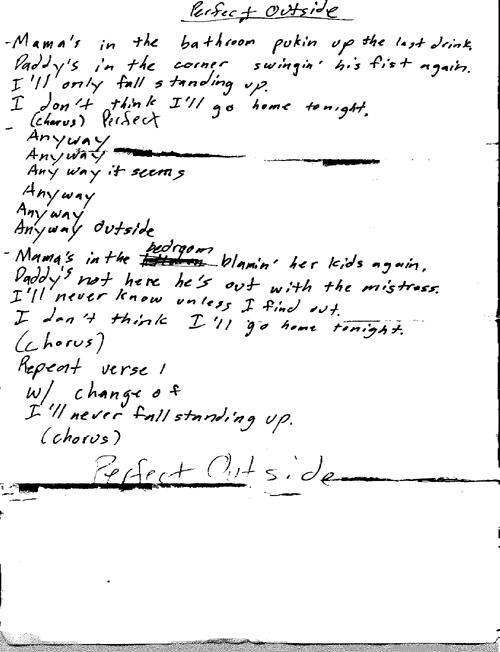 Perfect Outside
- Mama's in the bathroom pukin up the last drink.
Daddy's in the corner swingin' his fist again.
I'll only fall standing up.
I don't think I'll go home tonight.
(chorus) Perfect
- Anyway
Anyway
Any way it seems
Anyway
Anyway
Anyway outside
- Mama's in the bedroom blamin' her kids again.
Daddy's not here he's out with the mistress.
I'll never know unless I find out.
I don't think I'll go home tonight.
(chorus)
Repeat verse 1
w/ change of
I'll never fall standing up.
(chorus)
Perfect Outside